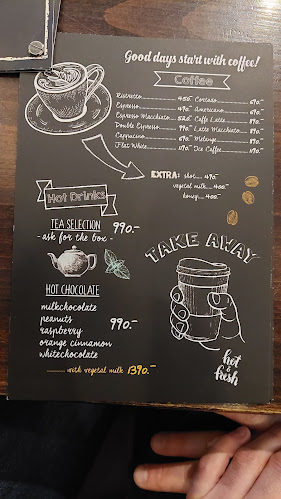 Good days start with coffee!
Coffee
Ristretto 450.- Cortado 690.-
Espresso 490.- Americano 690.-
Espresso Macchiato 520.- Caffe Latte 890.-
Double Espresso 990.- Latte Macchiato 890.-
Cappuccino 690.- Melange 890.-
Flat White 1190.- Ice Coffee 1190.-
EXTRA: shot 490.-
vegetal milk 400.-
honey 400.-
Hot Drinks
TEA SELECTION 990.-
- ask for the box -
TAKE AWAY
HOT CHOCOLATE
milkchocolate
peanuts
raspberry 990.-
orange cinnamon
whitechocolate
with vegetal milk 1390.-
hot
&
fresh